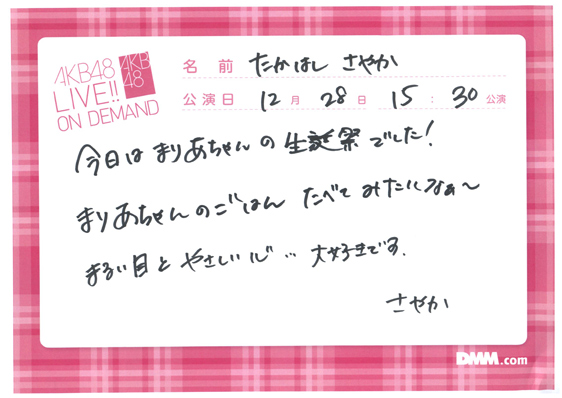 AKB48
LIVE!!
ON DEMAND
AKB
48
名前 たかはし さやか
公演日 12月 28日 15:30公演
今日は まりあちゃんの 生誕祭でした!
まりあちゃんのごはん たべて みたいなぁ〜
まるい目と やさしい心… 大好きです.
さやか
DMM.com